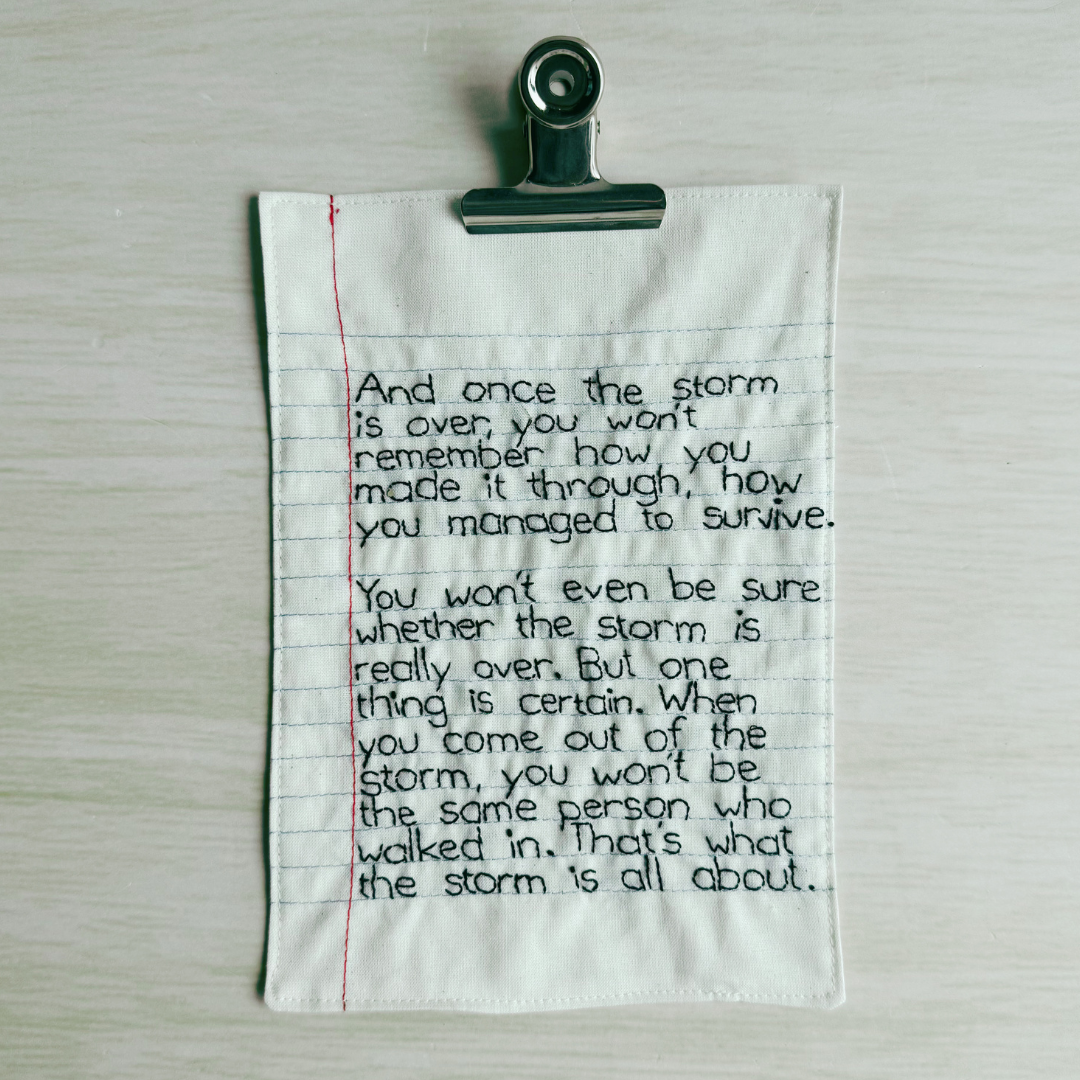 And once the storm
is over, you won't
remember how you
made it through, how
you managed to survive.
You won't even be sure
whether the storm is
really over. But one
thing is certain. When
you come out of the
storm, you won't be
the same person who
walked in. That's what
the storm is all about.